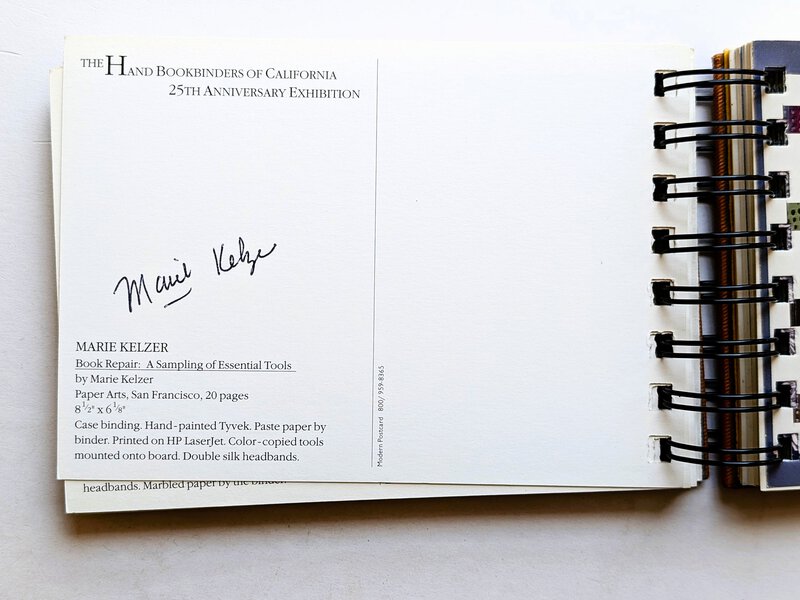 THE HAND BOOKBINDERS OF CALIFORNIA
25TH ANNIVERSARY EXHIBITION
Marie Kelzer
MARIE KELZER
Book Repair: A Sampling of Essential Tools
by Marie Kelzer
Paper Arts, San Francisco, 20 pages
8 1/2" x 6 1/8"
Case binding. Hand-painted Tyvek. Paste paper by
binder. Printed on HP LaserJet. Color-copied tools
mounted onto board. Double silk headbands.
Modern Postcard 800/959-8365
headbands. Marbled paper by the binder.